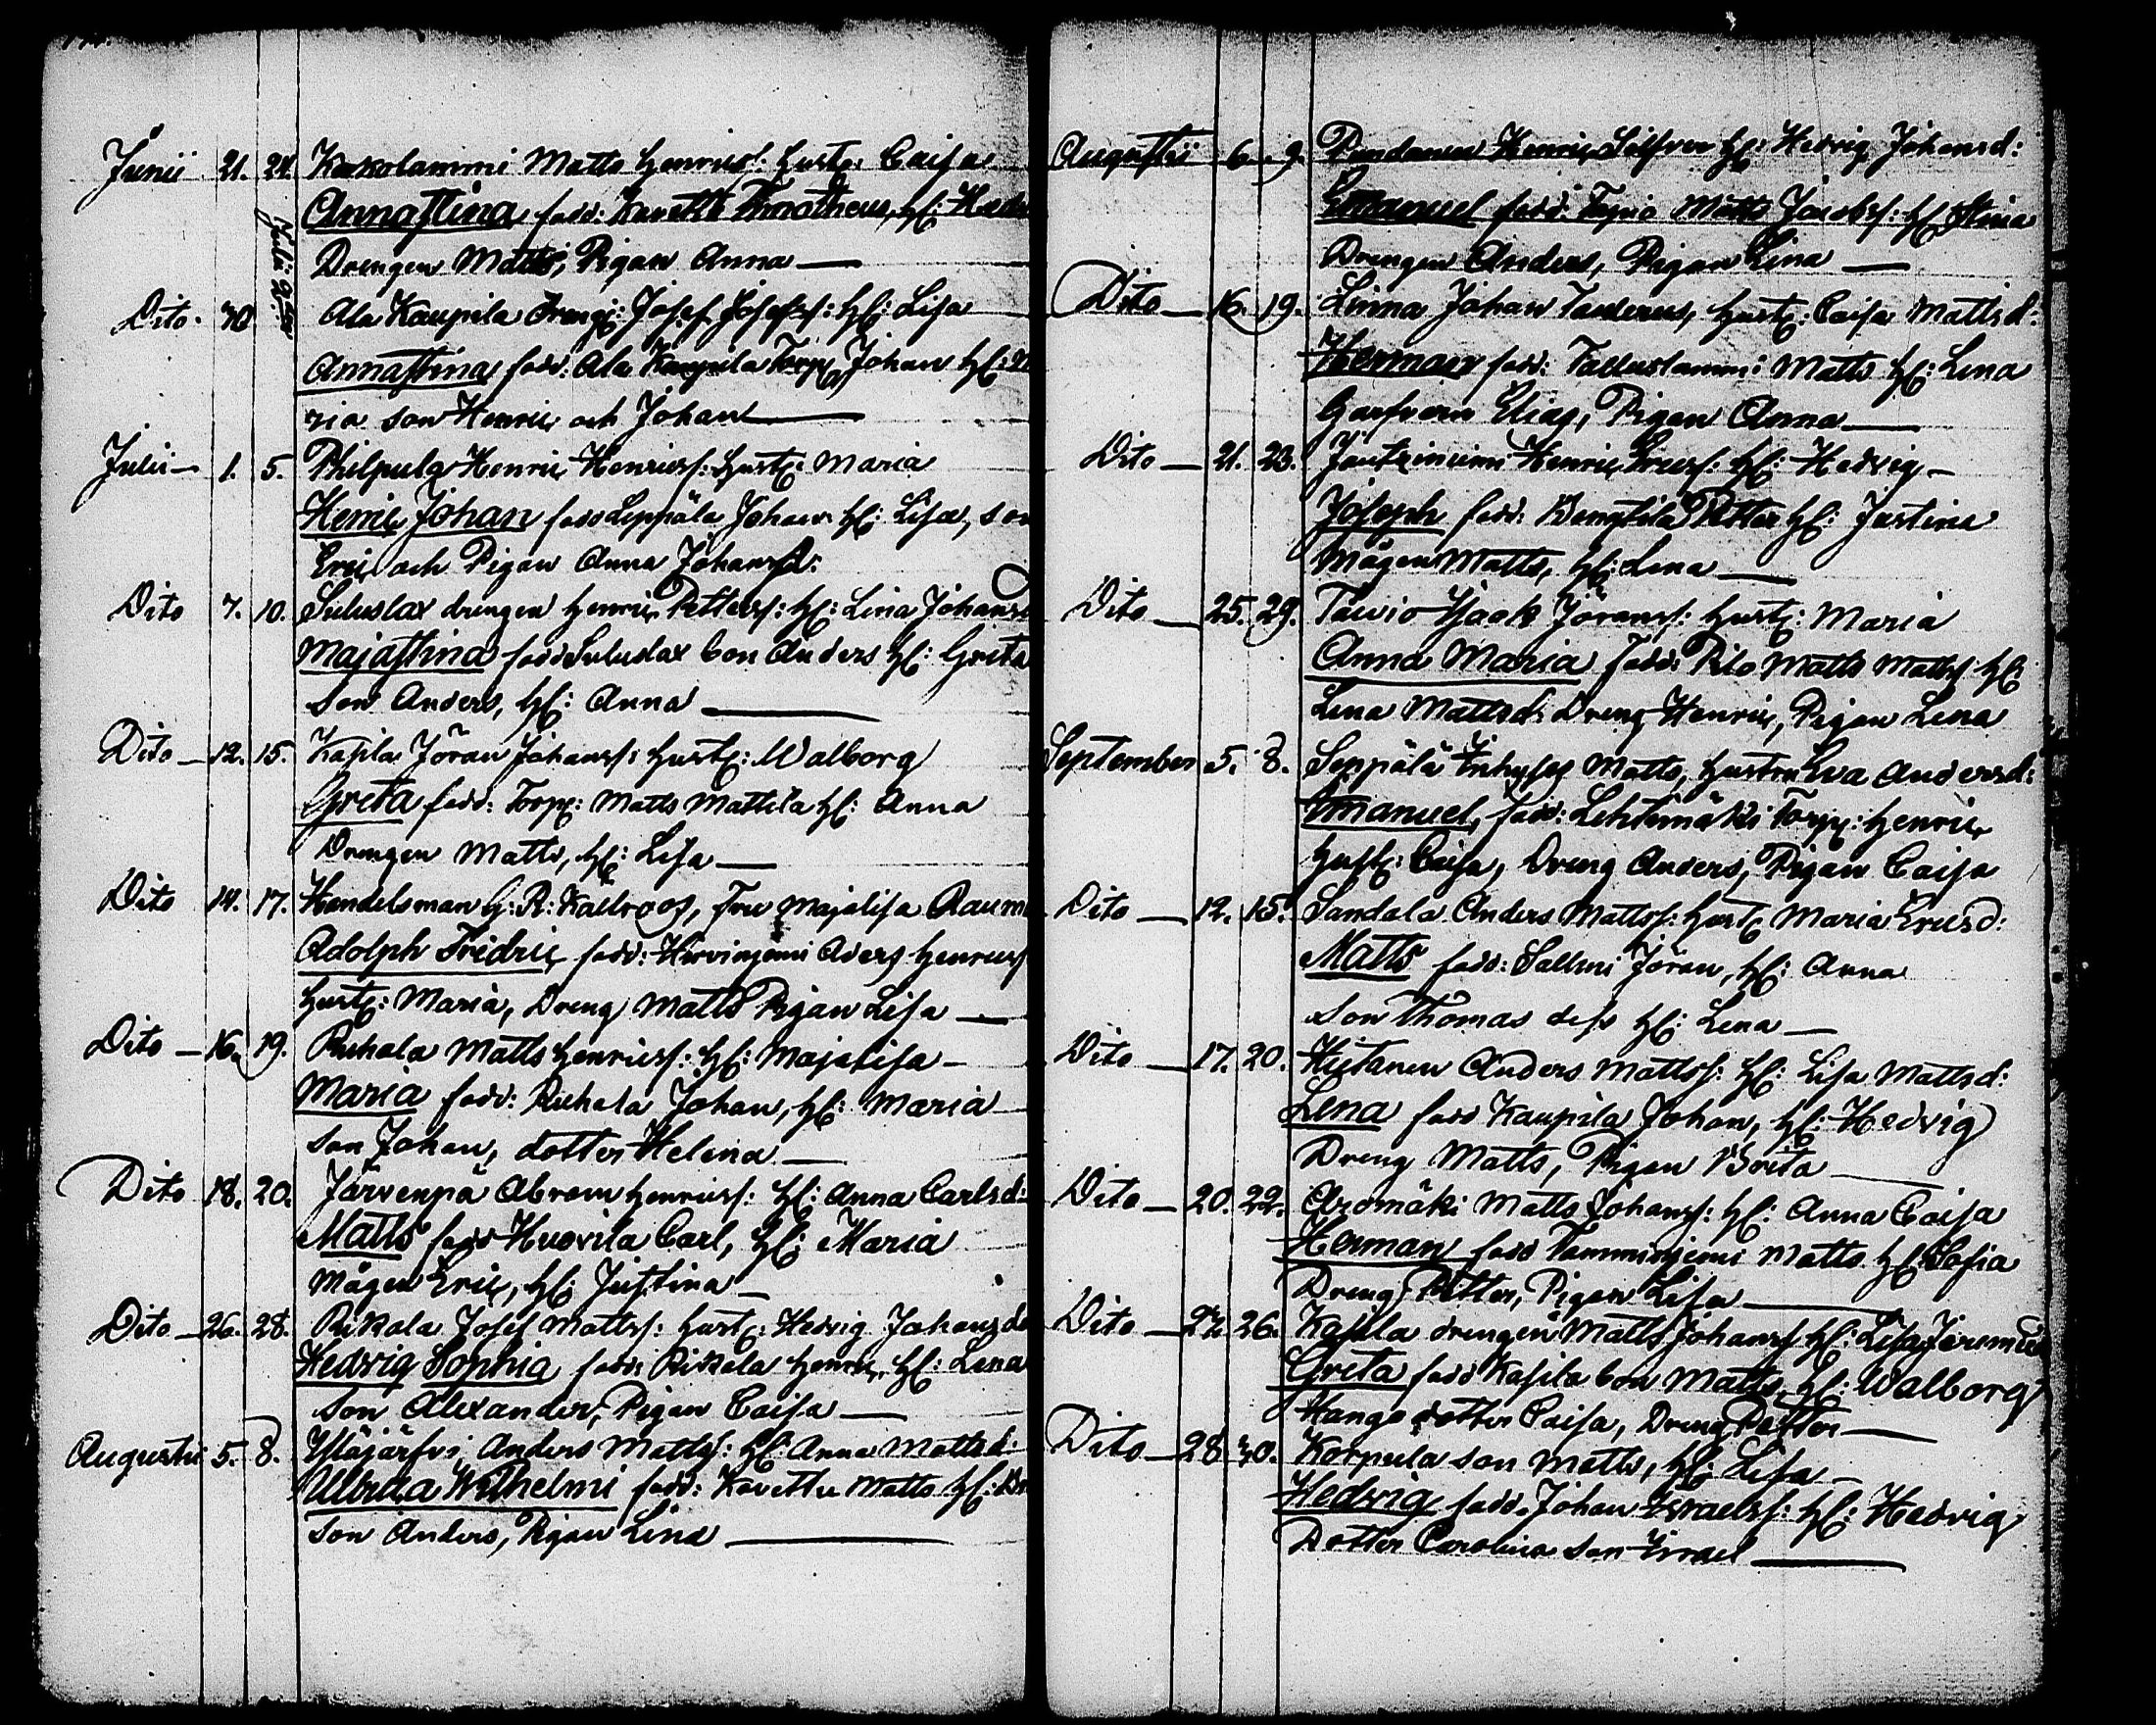 Junii 21. 24. Kaxolammi Matts Henrics: hustr: Caisa
Annastina fadd: Kavetti Thimotheus, h: Hed
Drengen Matts, Pigan Anna —
Dito 30 Julii 2 Ala Kaupila Drengi: Josef Josefss: h: Lisa
Annastina fadd: Ala Kaupila Torp: Johan h: M
ria son Henric och Johan —
Julii — 1. 5. Philpula Henric Henricss: hustr: Maria
Henric Johan fadd Leppäla Johan h: Lisa, son
Eric och Pigan Anna Johansd:
Dito 7. 10. Suluslax drengen Henric Petterss: h: Lina Johansd
Majastina fadd Suluslax bon Anders h: Greta
son Anders, h: Anna —
Dito — 12. 15. Kasila Jöran Johanss: hustr: Walborg
Greta fadd: Torp: Matts Mattila h: Anna
Drengen Matts, h: Lisa —
Dito 14. 17. Handelsman G: R: Källroos, Fru Majalisa Raum
Adolph Fridric fadd: Hirvinjemi Anders Henricss
hustr: Maria, Dreng Matts Pigan Lisa —
Dito — 16. 19. Ruhala Matts Henricss: h: Majalisa —
Maria fadd: Ruhala Johan, h: Maria
son Johan, dotter Helena —
Dito 18. 20. Järvenpä Abram Henricss: h: Anna Carlsd:
Matts fadd Huovila Carl, h: Maria
Mågen Eric, h: Justina —
Dito — 26. 28. Rikala Josef Mattss: hustr: Hedvig Johansd
Hedvig Sophia fadd: Rikala Henric, h: Lena
son Alexander, Pigan Caisa —
Augustii 5. 8. Yläjärfvi Anders Mattss: h: Anna Mattsd:
Ulrica Wilhelmi fadd: Kavettu Matts h: Br
son Anders, Pigan Lina —
Augustii 6. 9. Henric Silfver h: Hedvig Johansd:
Emanuel fadd: Matts Jacobss: h: Stina
Drengen Anders, Pigan Lina —
Dito — 16. 19. Linna Johan Tanderus, hustr: Caisa Mattsd:
Herman fadd: Talluslammi Matts h: Lena
Garfvarn Elias, Pigan Anna —
Dito — 21. 23. Joutziniemi Henric Ericss: h: Hedvig —
Joseph fadd: Bengtila Petter h: Justina
Mågen Matts, h: Lena —
Dito — 25. 29. Tawio Isaak Jöranss: hustr: Maria
Anna Maria fadd: Pilo Matts Mattss h:
Lena Mattsd: Dreng Henric, Pigan Lena
September 5. 8. Seppälä Inhyses Matts, hustru Eva Andersd:
Emanuel, fadd: Lehtimäki Torp: Henric
hustr: Caisa, Dreng Anders, Pigan Caisa
Dito — 12. 15. Sandala Anders Mattss: hustr Maria Ericsd:
Matts fadd: Sallmi Jöran, h: Anna
Son Thomas dess h: Lena —
Dito — 17. 20. Hietanen Anders Mattss: h: Lisa Mattsd:
Lena fadd Kaupila Johan, h: Hedvig
Dreng Matts, Pigan Brita —
Dito — 20. 22. Aromäki Matts Johanss: h: Anna Caisa
Herman fadd Tamminjemi Matts h: Sofia
Dreng Petter, Pigan Lisa —
Dito — 24. 26. Kasila drengen Matts Johanss h: Lisa Jeremiæ
Greta fadd Kasila bon Matts, h: Walborg
Hango dotter Caisa, Dreng Petter —
Dito — 28. 30. Korpula son Matts, h: Lisa —
Hedvig fadd. Johan Israelss: h: Hedvig
Dotter Carolina son Israel —